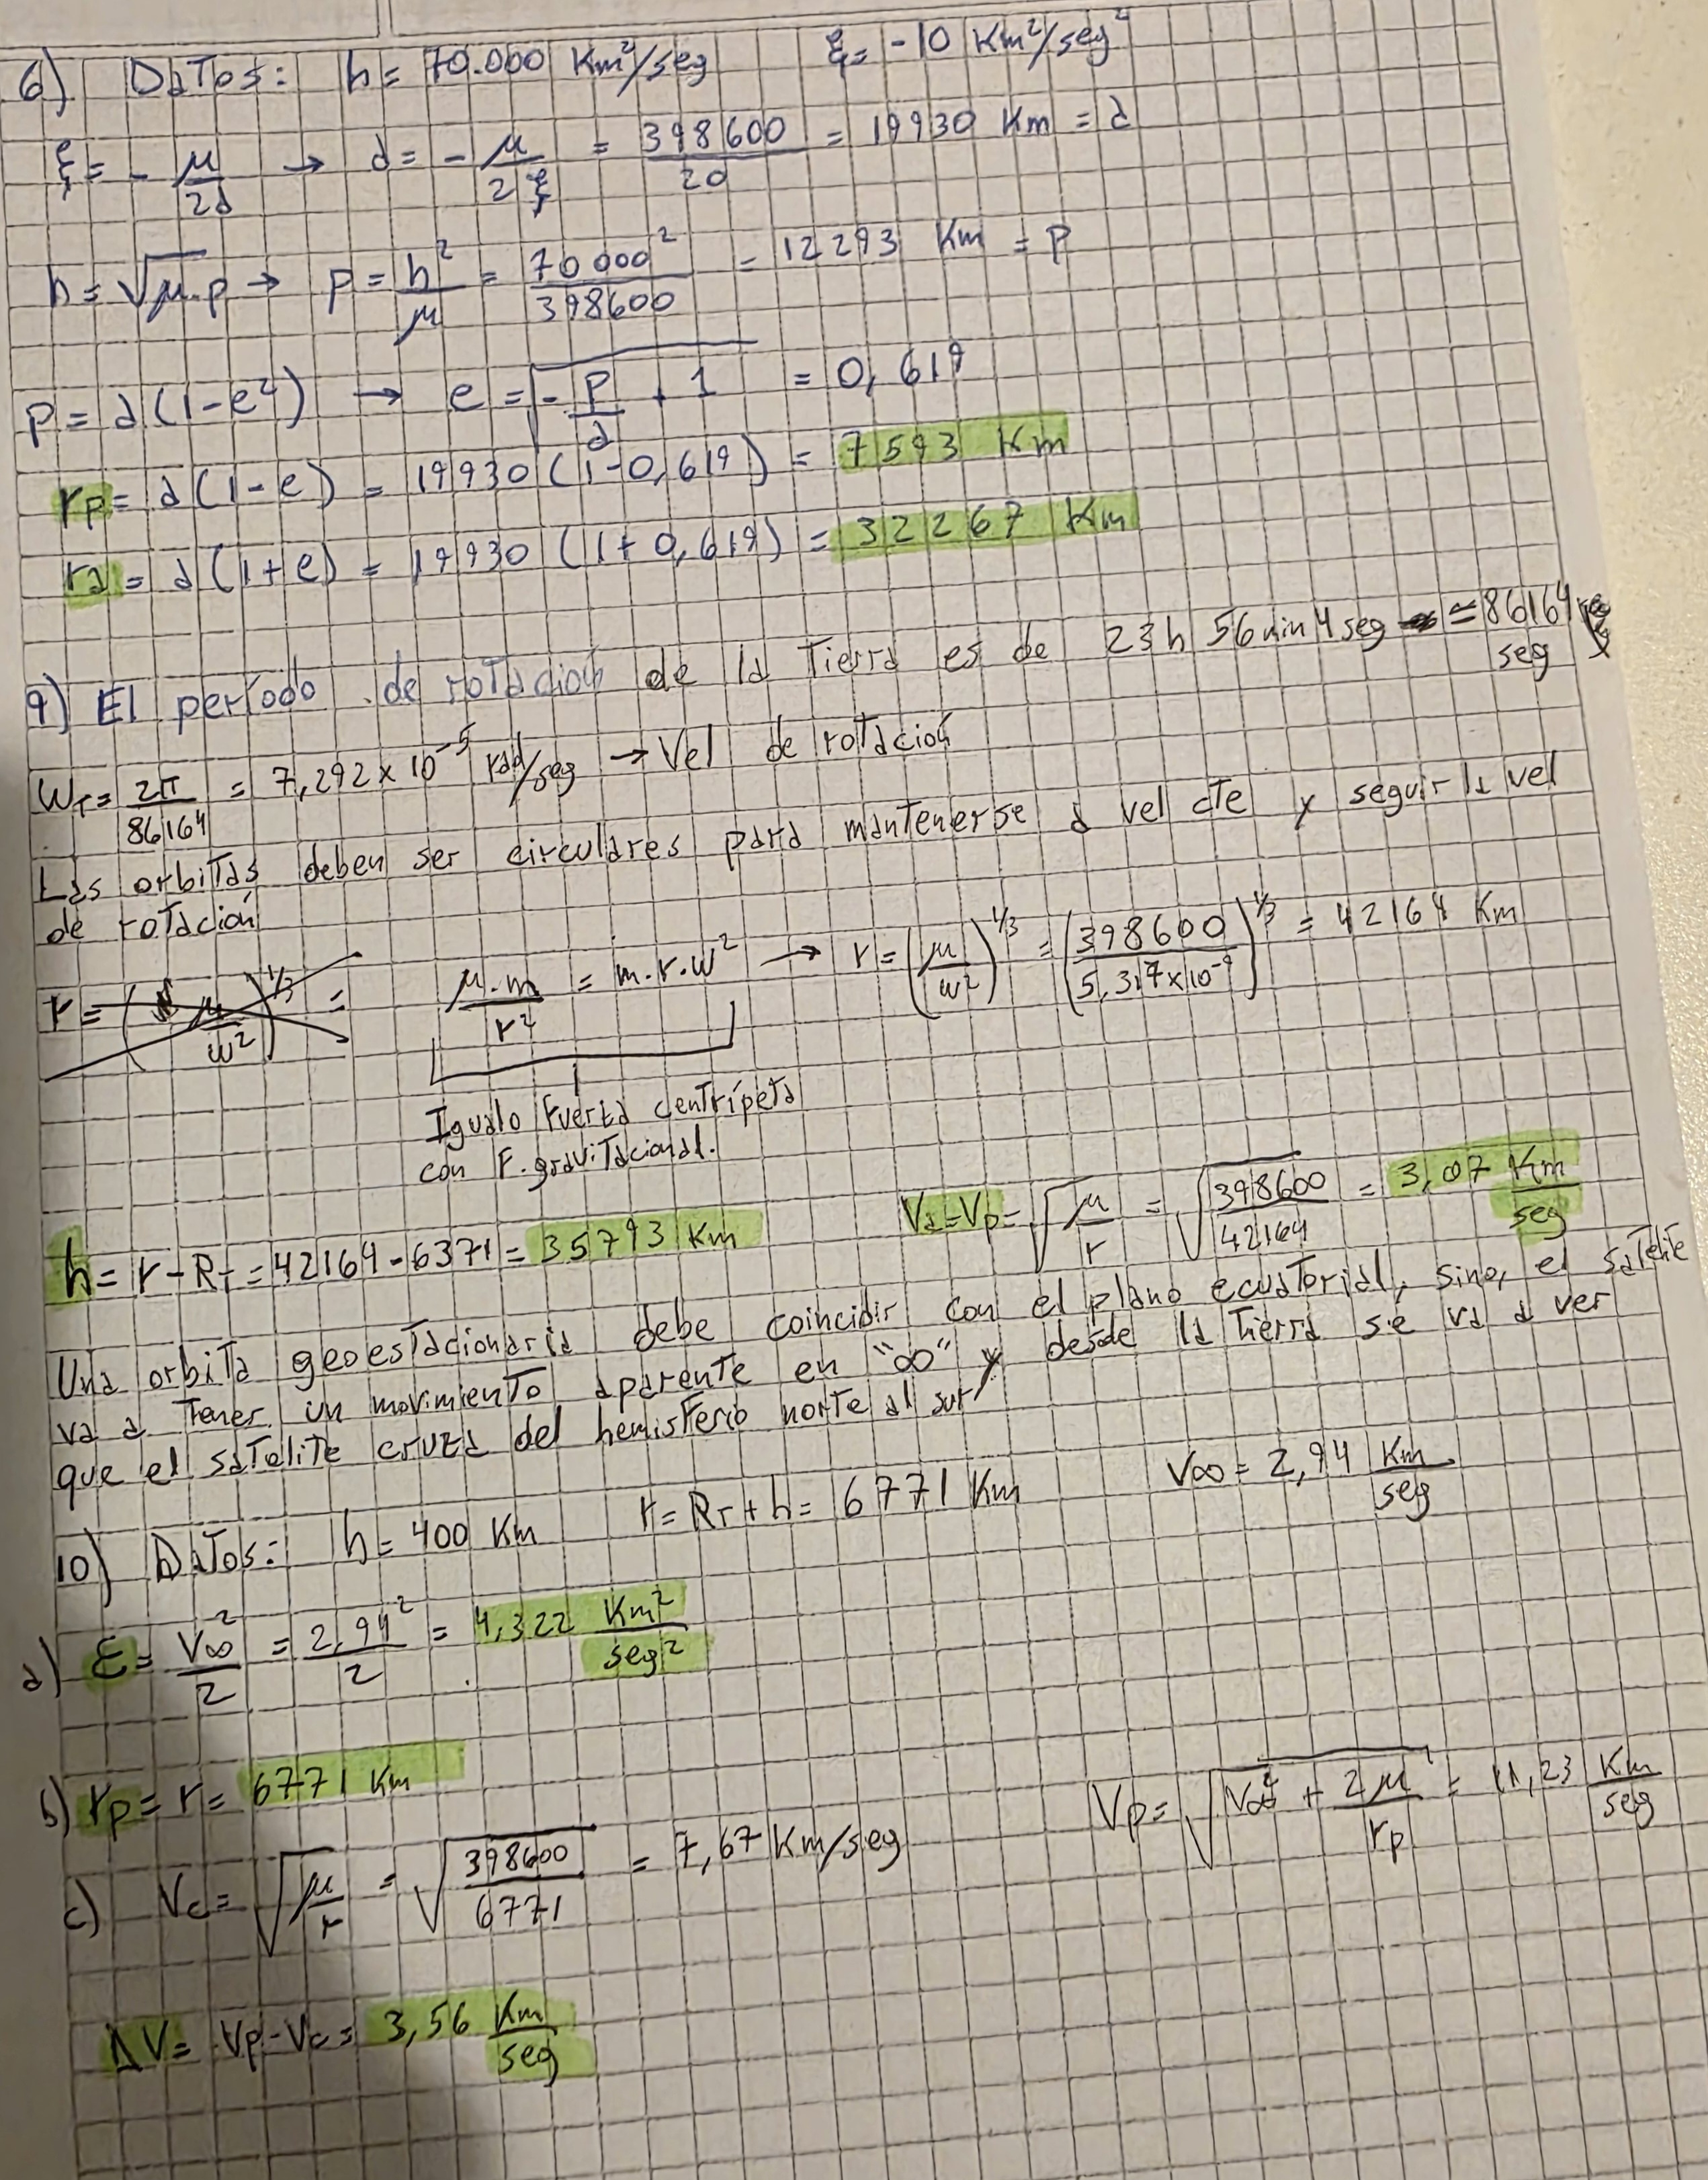 6) Datos: h= 70.000 Km²/seg ξ= -10 Km²/seg²
ξ= - μ/2a → a= - μ/2ξ = 398600/20 = 19930 Km = a
h= √μ.p → p= h²/μ = 70000²/398600 = 12293 Km = p
p= a(1-e²) → e= √(-p/a + 1) = 0,619
rp= a(1-e) = 19930 (1-0,619) = 7593 Km
ra= a(1+e) = 19930 (1+0,619) = 32267 Km
9) El período de rotación de la Tierra es de 23h 56min 4seg = 86164 seg
WT= 2π/86164 = 7,292x10⁻⁵ rad/seg → Vel de rotación
Las orbitas deben ser circulares para mantenerse a vel cte y seguir la vel
de rotación
r= (μ/w²)^1/3 = μ.m/r² = m.r.w² → r= (μ/w²)^1/3 = (398600/5,317x10⁻⁹)^1/3 = 42164 Km
Igualo fuerza centrípeta
con F.gravitacional.
h= r-RT = 42164-6371= 35793 Km Va=Vp= √μ/r = √398600/42164 = 3,07 Km/seg
Una orbita geoestacionaria debe coincidir con el plano ecuatorial, sino, el satelite
va a tener un movimiento aparente en "∞" y desde la tierra se va a ver
que el satelite cruza del hemisferio norte al sur
10) Datos: h= 400 Km r= RT+h= 6771 Km V∞= 2,94 Km/seg
a) ε= V∞²/2 = 2,94²/2 = 4,322 Km²/seg²
b) rp= r= 6771 Km Vp= √(V∞² + 2μ/rp) = 11,23 Km/seg
c) Vc= √μ/r = √398600/6771 = 7,67 Km/seg
ΔV= Vp-Vc= 3,56 Km/seg